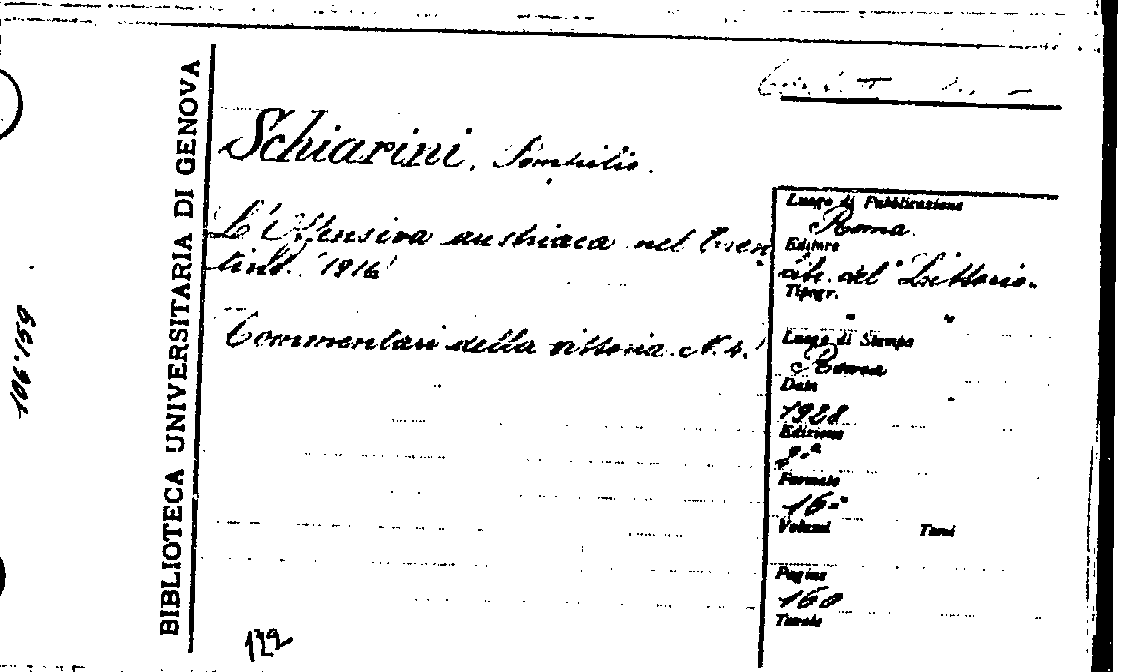 BIBLIOTECA UNIVERSITARIA DI GENOVA
106.159
Schiarini, Pompilio.
L'Offensiva austriaca nel Tren
tino. (1916)
Commentari della vittoria. N. 4.)
122
Luogo di Pubblicazione
Roma.
Editore
Lib. del Littorio.
Tipogr.
" "
Luogo di Stampa
Roma
Data
1928
Edizione
Formato
16°
Volumi Tomi
Pagine
160
Tavole